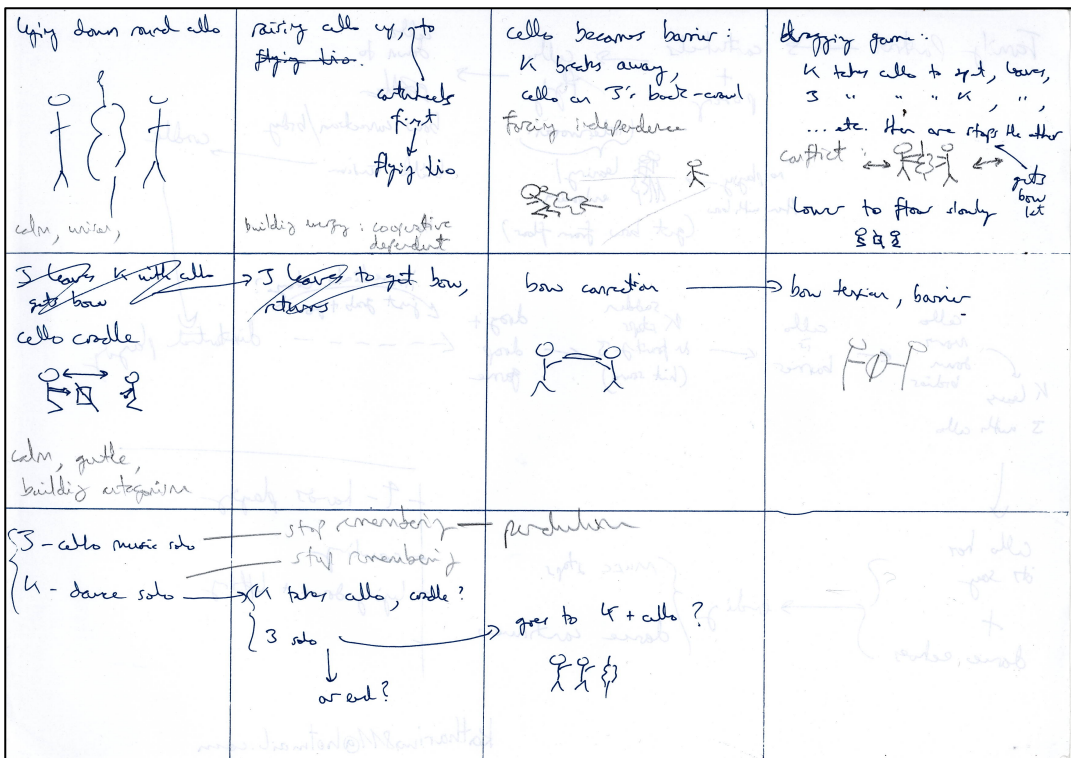 lying down round cello
calm, unison,
raising cello up, to
flying trio.
cartwheels
first
flying trio
building energy : cooperative
dependent
cello becomes barrier :
K breaks away,
cello on J's back-crawl
forcing independence
dragging game :
K takes cello to spot, leaves,
J " " " K , " ,
... etc. then one stops the other
conflict :
gets
bow
1st
lower to floor slowly
J leaves K with cello
gets bow
cello cradle
calm, gentle,
building antagonism
J leaves to get bow,
returns
bow connection
bow tension, barrier
J - cello music solo
K - dance solo
stop remembering
stop remembering
pendulum
K takes cello, cradle ?
J solo
or end ?
goes to K + cello ?